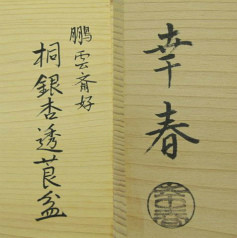 鵬雲斎好
桐銀杏透莨盆
幸春
幸春